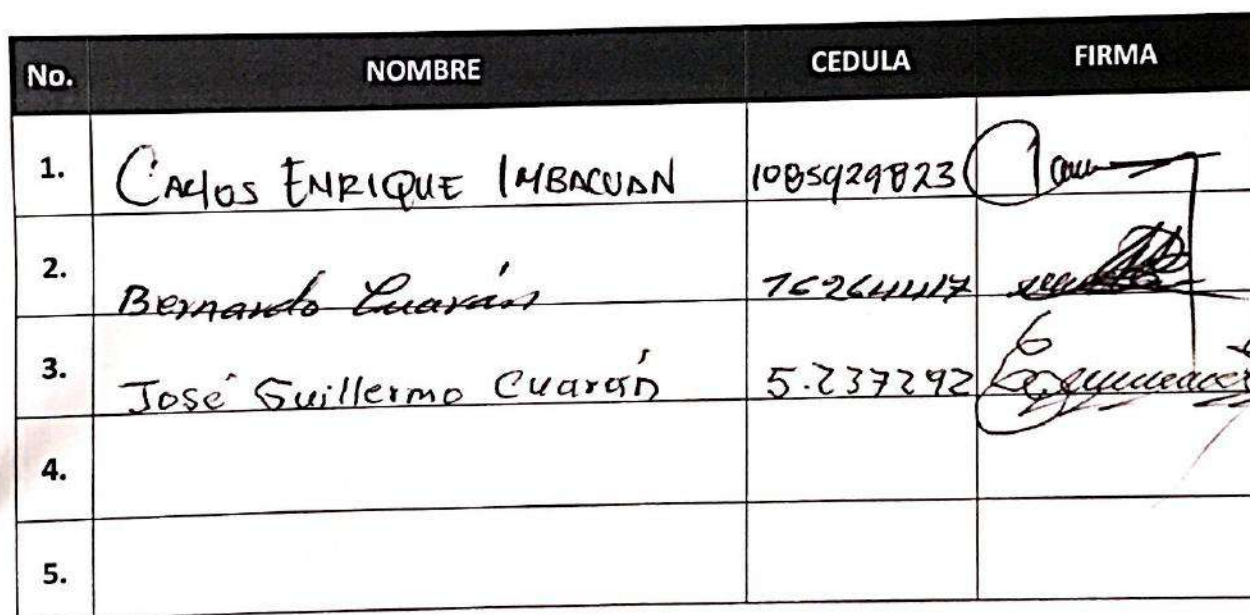 No. NOMBRE CEDULA FIRMA
1. CARLOS ENRIQUE IMBACUAN 1085929823
2. Bernardo Cuarán
3. José Guillermo Cuarán 5.237292
4.
5.